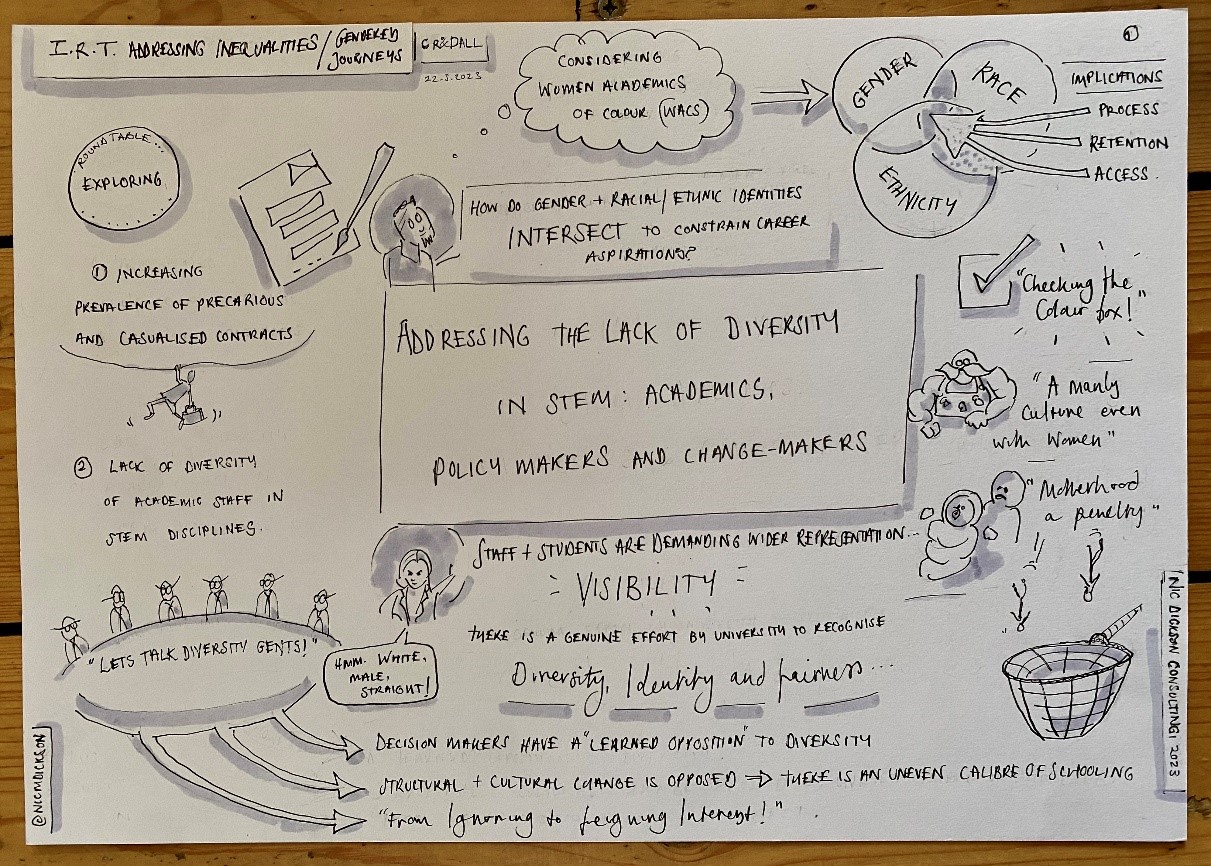 I.R.T. ADDRESSING INEQUALITIES/ GENDERED JOURNEYS
CR&DALL
22.5.2023
CONSIDERING
WOMEN ACADEMICS
OF COLOUR (WACS)
GENDER
RACE
ETHNICITY
1
IMPLICATIONS
PROCESS
RETENTION
ACCESS.
ROUNDTABLE...
EXPLORING
HOW DO GENDER + RACIAL/ ETHNIC IDENTITIES
INTERSECT TO CONSTRAIN CAREER
ASPIRATIONS?
① INCREASING
PREVALENCE OF PRECARIOUS
AND CASUALISED CONTRACTS
② LACK OF DIVERSITY
OF ACADEMIC STAFF IN
STEM DISCIPLINES.
ADDRESSING THE LACK OF DIVERSITY
IN STEM: ACADEMICS,
POLICY MAKERS AND CHANGE-MAKERS
"Checking the
Colour box!"
"A manly
Culture even
with women"
"Motherhood
a penelty"
STAFF + STUDENTS ARE DEMANDING WIDER REPRESENTATION...
= VISIBILITY =
THERE IS A GENUINE EFFORT BY UNIVERSITY TO RECOGNISE
Diversity, Identity and fairness...
"LETS TALK DIVERSITY GENTS!"
HMM. WHITE,
MALE,
STRAIGHT!
DECISION MAKERS HAVE A "LEARNED OPPOSITION" TO DIVERSITY
STRUCTURAL + CULTURAL CHANGE IS OPPOSED ⇒ THERE IS AN UNEVEN CALIBRE OF SCHOOLING
"From Ignoring to feigning Interest!"
@NICMDICKSON
NIC DICKSON CONSULTING 2023